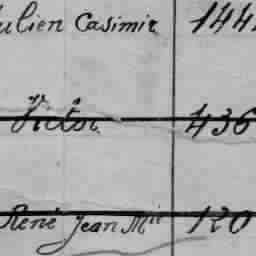 ulien Casimir 144
436
René Jean Mie 120